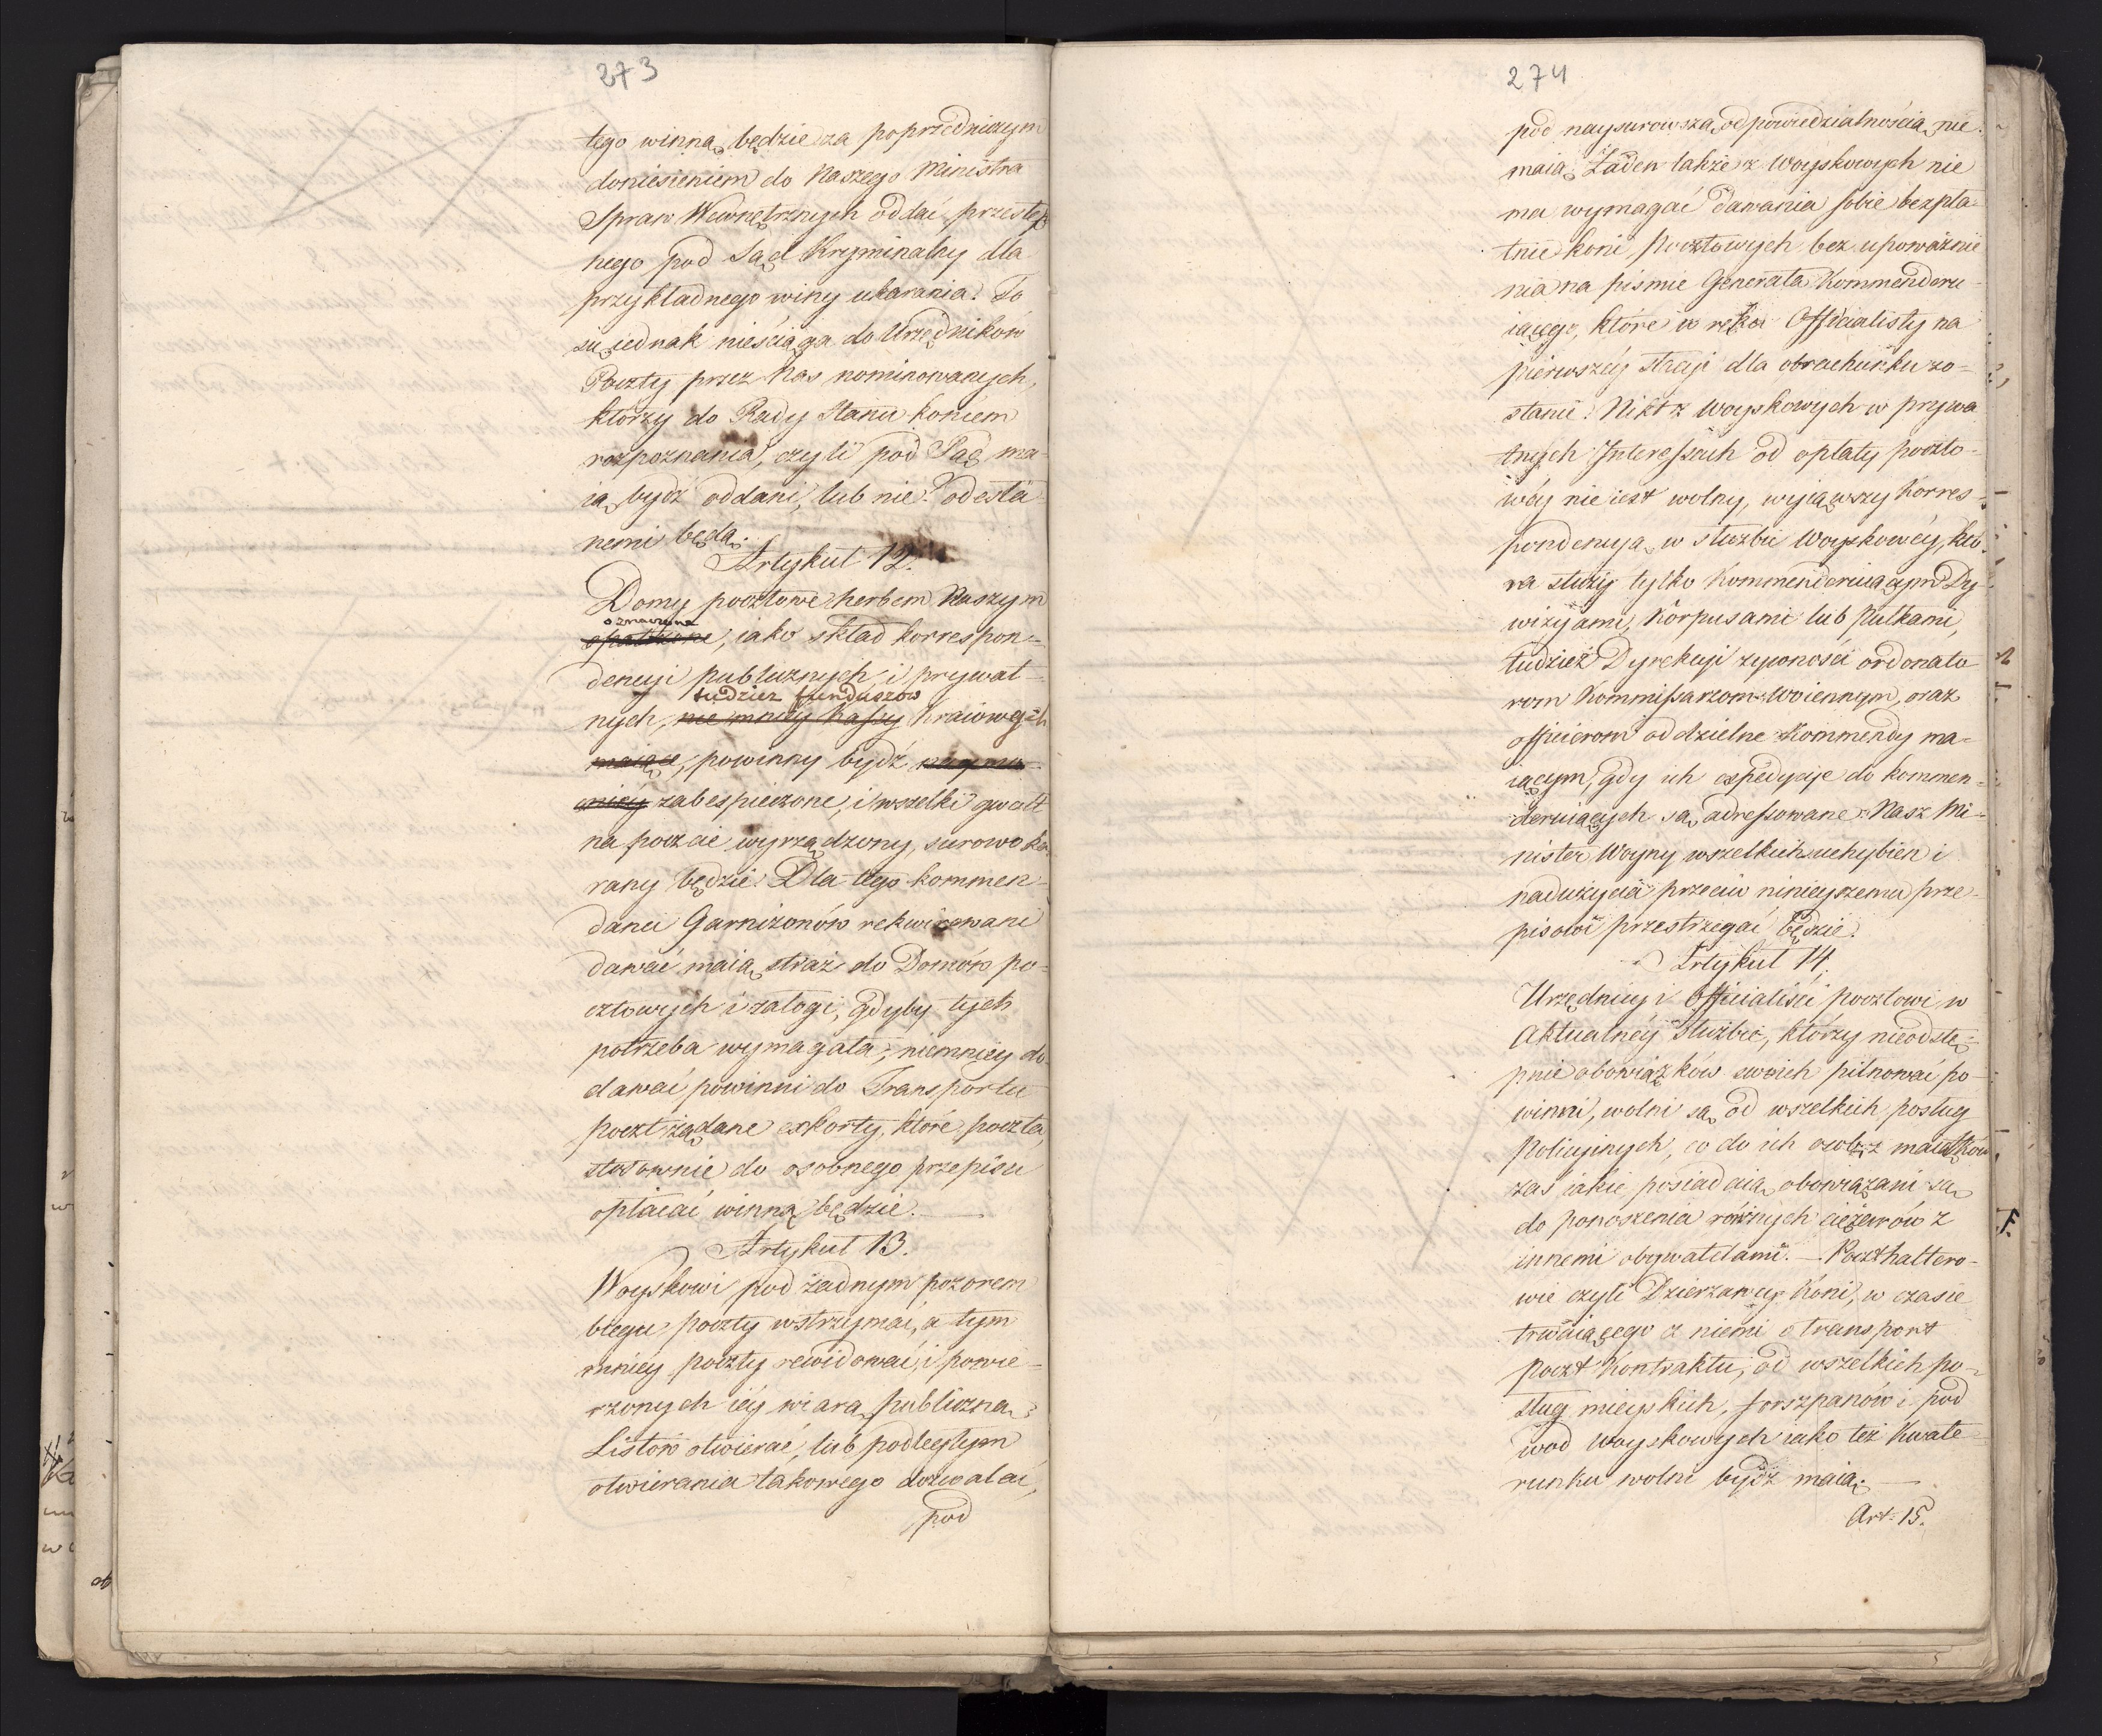 273
tego winną będzie za poprzedniczym
doniesieniem do Naszego Ministra
Spraw Wewnętrznych oddać przestęp
nego pod Sąd Kryminalny dla
przykładnego winy ukarania. To
się iednak nieściąga do Urzędników
Poczty przez Nas nominowanych,
którzy do Rady Stanu koniem
rozpoznania, czyli pod Sąd ma-
ią bydź oddani, lub nie? odesła
nemi będą.
Artykuł 12.
Domy pocztowe herbem Naszym
oznaczone
opatrzone, iako skład korrespon=
dencyi publicznych i prywat=
tudzież funduszow
nych, nie mniey kassy kraiowych
maiące, powinny bydź naymo=
cniey zabespieczone, i wszelki gwałt
na poczcie wyrządzony, surowo ka
rany będzie. Dla tego kommen=
danci Garnizonów rekwirowani
dawać maią straż do Domów po=
cztowych i załogi, gdyby tych
potrzeba wymagała; niemniey do
dawać powinni do Transportu
poczt żądane exkorty, które poczta,
stosownie do osobnego przepisu
opłacać winną będzie.
Artykuł 13.
Woyskowi pod żadnym pozorem
biegu poczty wstrzymać, a tym
mniey poczty rewidować, i powie=
rzonych iéy wiarą publiczną
Listów otwierać, lub podległym
otwierania takowego dozwalać,
pod
274
pod naysurowszą odpowiedzialnością nie
maią. Żaden także z Woyskowych nie
ma wymagać dawania sobie bezpła=
tnie koni Pocztowych bez upoważnie
nia na piśmie Generała Kommenderu=
iącego, które w ręku Officialisty na
pierwszéy stacyi dla obrachunku zo=
stanie. Nikt z Woyskowych w prywa
tnych Interessach od opłaty poczto=
wéy nie iest wolny, wyiąwszy Korres=
pondencyą w służbie Woyskowéy, któ
ra służy tylko Kommenderuiącym Dy
wizyami, Korpusami lub Pułkami,
tudzież Dyrekcyi żywności ordonato
rom Kommissarzom Woiennym, oraz
officierom oddzielne Kommendy ma=
iącym, gdy ich expedycye do kommen=
deruiących są adressowane. Nasz Mi=
nister Woyny wszelkich uchybien i
nadużycia przeciw ninieyszemu prze=
pisowi przestrzegać będzie.
Artykuł 14.
Urzędnicy i Officialiści pocztowi w
Aktualnéy służbie, którzy nieodstę=
pnie obowiązków swoich pilnować po=
winni, wolni są od wszelkich posług
Policyinych, co do ich osób, z maiątków
zas iakie posiadaią obowiązani są
do ponoszenia różnych ciężarów z
innemi obywatelami. — Poczthaltero=
wie czyli Dzierżawcy Koni, w czasie
trwaiącego z niemi o transport
poczt Kontraktu, od wszelkich po=
sług mieyskich, forszpanów i pod
wod woyskowych iako też Kwate=
runku wolni bydź maią. —
Art: 15.